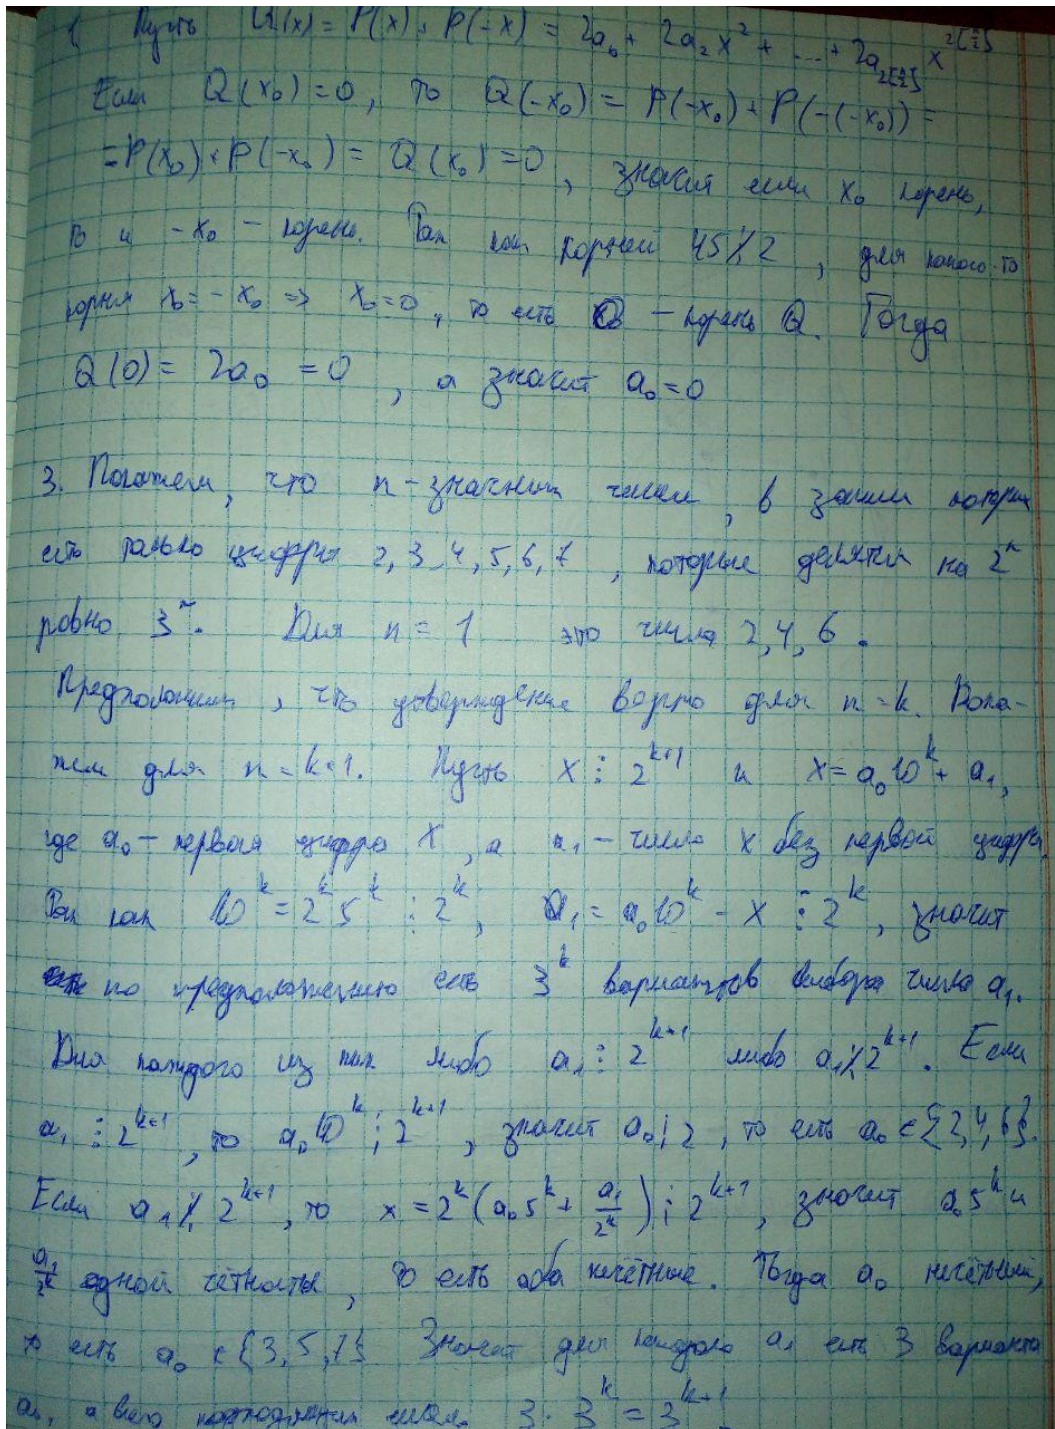 1. Пусть Q(x) = P(x) + P(-x) = 2a₀ + 2a₂x² + ... + 2a_{2[n/2]} x^{2[n/2]}
Если Q(x₀) = 0, то Q(-x₀) = P(-x₀) + P(-(-x₀)) =
= P(x₀) + P(-x₀) = Q(x₀) = 0, значит если x₀ корень,
то и -x₀ - корень. Так как корней 45 ⋮̸ 2, для какого-то
корня x₀ = -x₀ => x₀ = 0, то есть 0 - корень Q. Тогда
Q(0) = 2a₀ = 0, а значит a₀ = 0
3. Покажем, что n-значных чисел, в записи которых
есть только цифры 2, 3, 4, 5, 6, 7, которые делятся на 2ⁿ
ровно 3ⁿ. Для n = 1 это числа 2, 4, 6.
Предположим, что утверждение верно для n = k. Дока-
жем для n = k+1. Пусть x ⋮ 2^{k+1} и x = a₀10^k + a₁,
где a₀ - первая цифра x, а a₁ - число x без первой цифры.
Так как 10^k = 2^k 5^k ⋮ 2^k, a₁ = a₀10^k - x ⋮ 2^k, значит
по предположению есть 3^k вариантов выбора числа a₁.
Для каждого из них либо a₁ ⋮ 2^{k+1} либо a₁ ⋮̸ 2^{k+1}. Если
a₁ ⋮ 2^{k+1}, то a₀10^k ⋮ 2^{k+1}, значит a₀ ⋮ 2, то есть a₀ ∈ {2, 4, 6}.
Если a₁ ⋮̸ 2^{k+1}, то x = 2^k (a₀5^k + a₁/2^k) ⋮ 2^{k+1}, значит a₀5^k и
a₁/2^k одной чётности, то есть оба нечётные. Тогда a₀ нечётный,
то есть a₀ ∈ {3, 5, 7} Значит для каждого a₁ есть 3 варианта
a₀, а всего подходящих чисел 3 · 3^k = 3^{k+1}